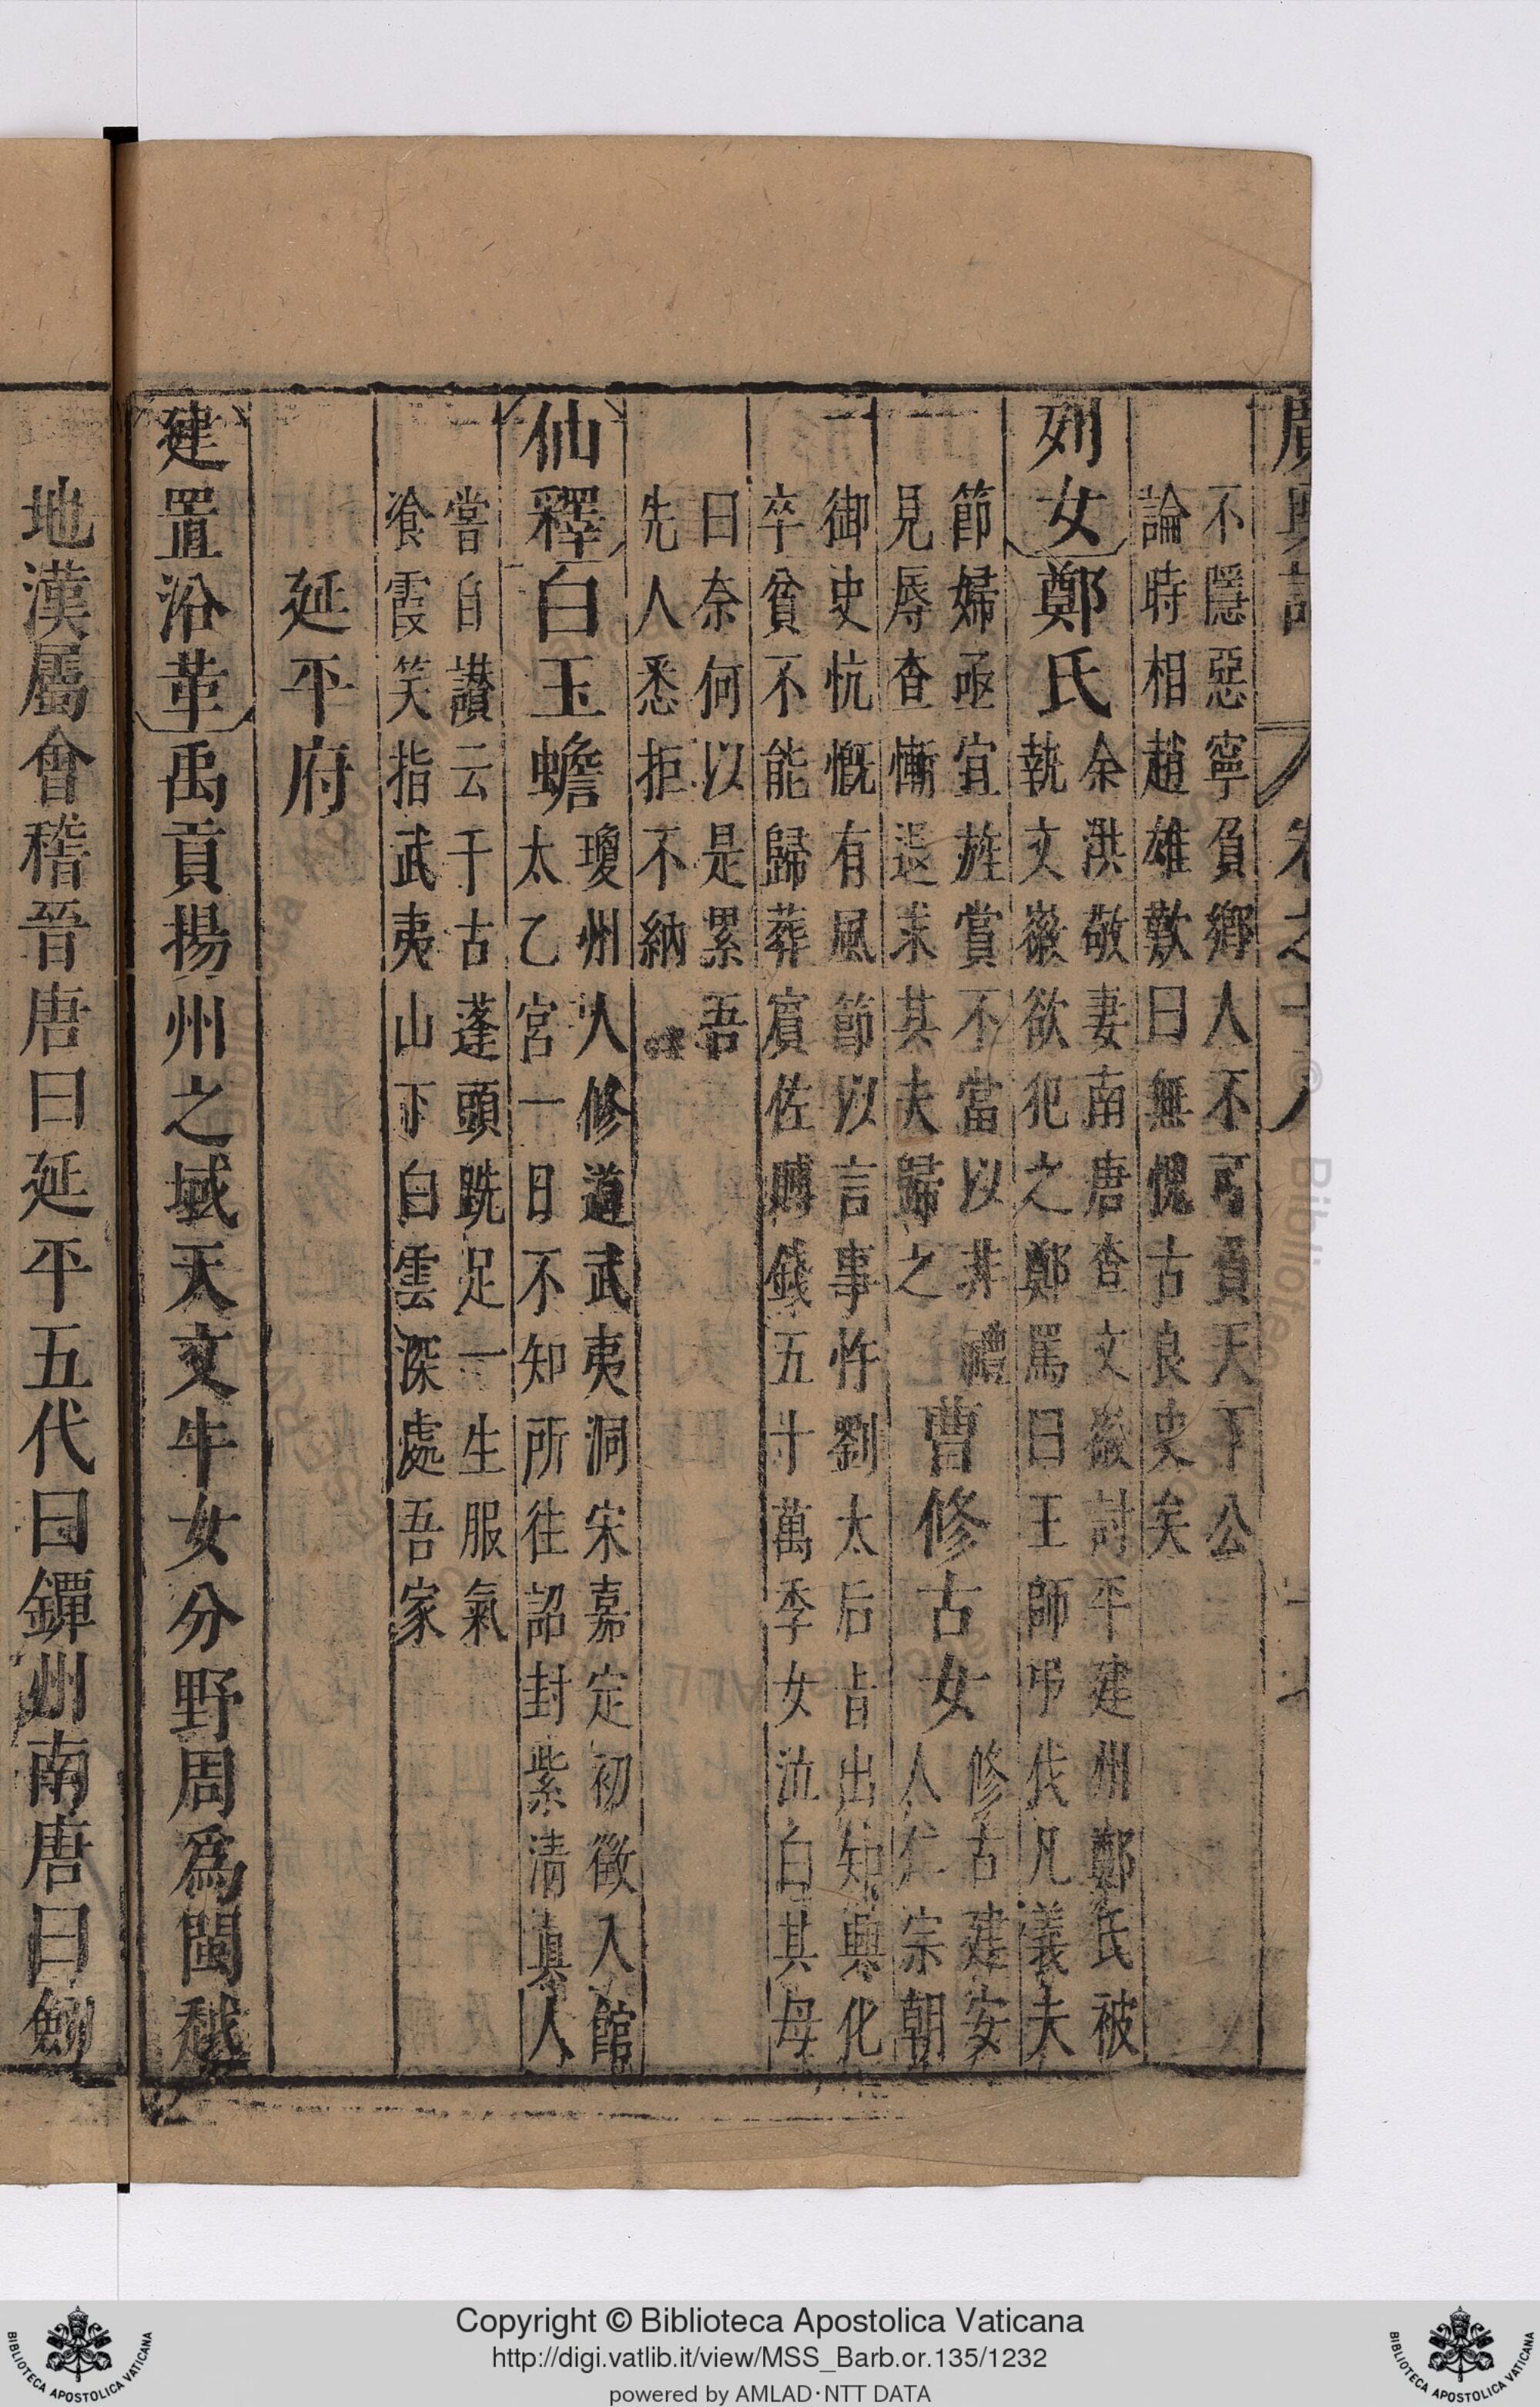 不隱惡寧負鄉人不可負天下公
論時相趙雄歎曰無愧古良史矣
列女 鄭氏 余洪敬妻南唐查文徽討平建州鄭氏被
執文徽欲犯之鄭罵曰王師弔伐凡義夫
節婦亟宜旌賞不當以非禮
見辱查慚遽求其夫歸之 曹修古女 修古建安
人仁宗朝
御史忼慨有風節以言事忤劉太后旨出知興化
卒貧不能歸葬賓佐賻錢五十萬季女泣白其母
曰奈何以是累吾
先人悉拒不納
仙釋 白玉蟾 瓊州人修道武夷洞宋嘉定初徵入館
太乙宮一日不知所往詔封紫清真人
嘗自讃云千古蓬頭跣足一生服氣
飡霞笑指武夷山下白雲深處吾家
延平府
建置沿革 禹貢揚州之域天文牛女分野周為閩越
地漢屬會稽晉唐曰延平五代曰鐔州南唐曰劒
Copyright © Biblioteca Apostolica Vaticana
http://digi.vatlib.it/view/MSS_Barb.or.135/1232
powered by AMLAD·NTT DATA
BIBLIOTECA APOSTOLICA VATICANA
BIBLIOTECA APOSTOLICA VATICANA